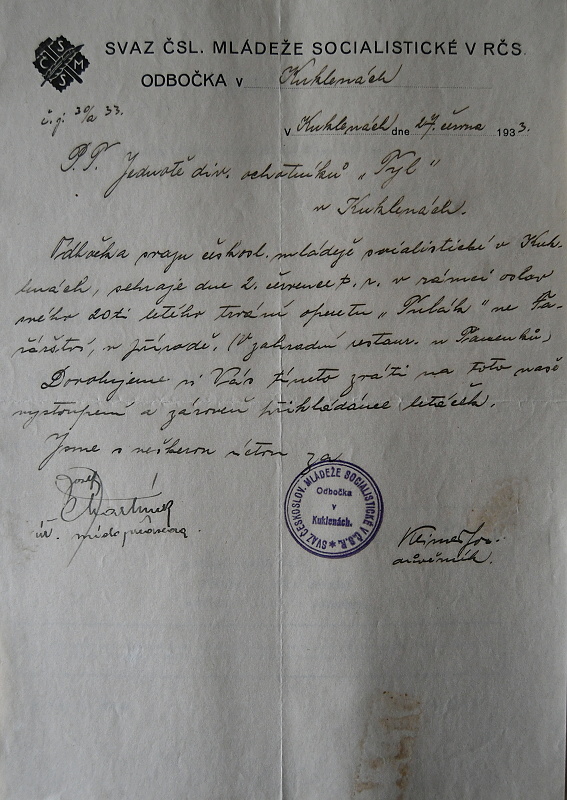 Č S M S
SVAZ ČSL. MLÁDEŽE SOCIALISTICKÉ V RČS.
ODBOČKA v Kuklenách
č.j. 30/a 33.
V Kuklenách dne 27. června 1933.
P.T.
Jednotě div. ochotníků „Tyl“
v Kuklenách.
Odbočka svazu českosl. mládeže socialistické v Kuk-
lenách, sehraje dne 2. července t. r. v rámci oslav
svého 20ti letého trvání operetu „Tulák“ ve Fa-
rářství, v přírodě, (v zahradní restaur. u
Dovolujeme si Vás tímto zváti na toto naše
vystoupení a zároveň přikládáme leták.
Jsme s veškerou úctou za
Josef
úř. místopředseda.
SVAZ ČESKOSLOV. MLÁDEŽE SOCIALISTICKÉ V Č.S.R.
Odbočka
v
Kuklenách.
důvěrník.